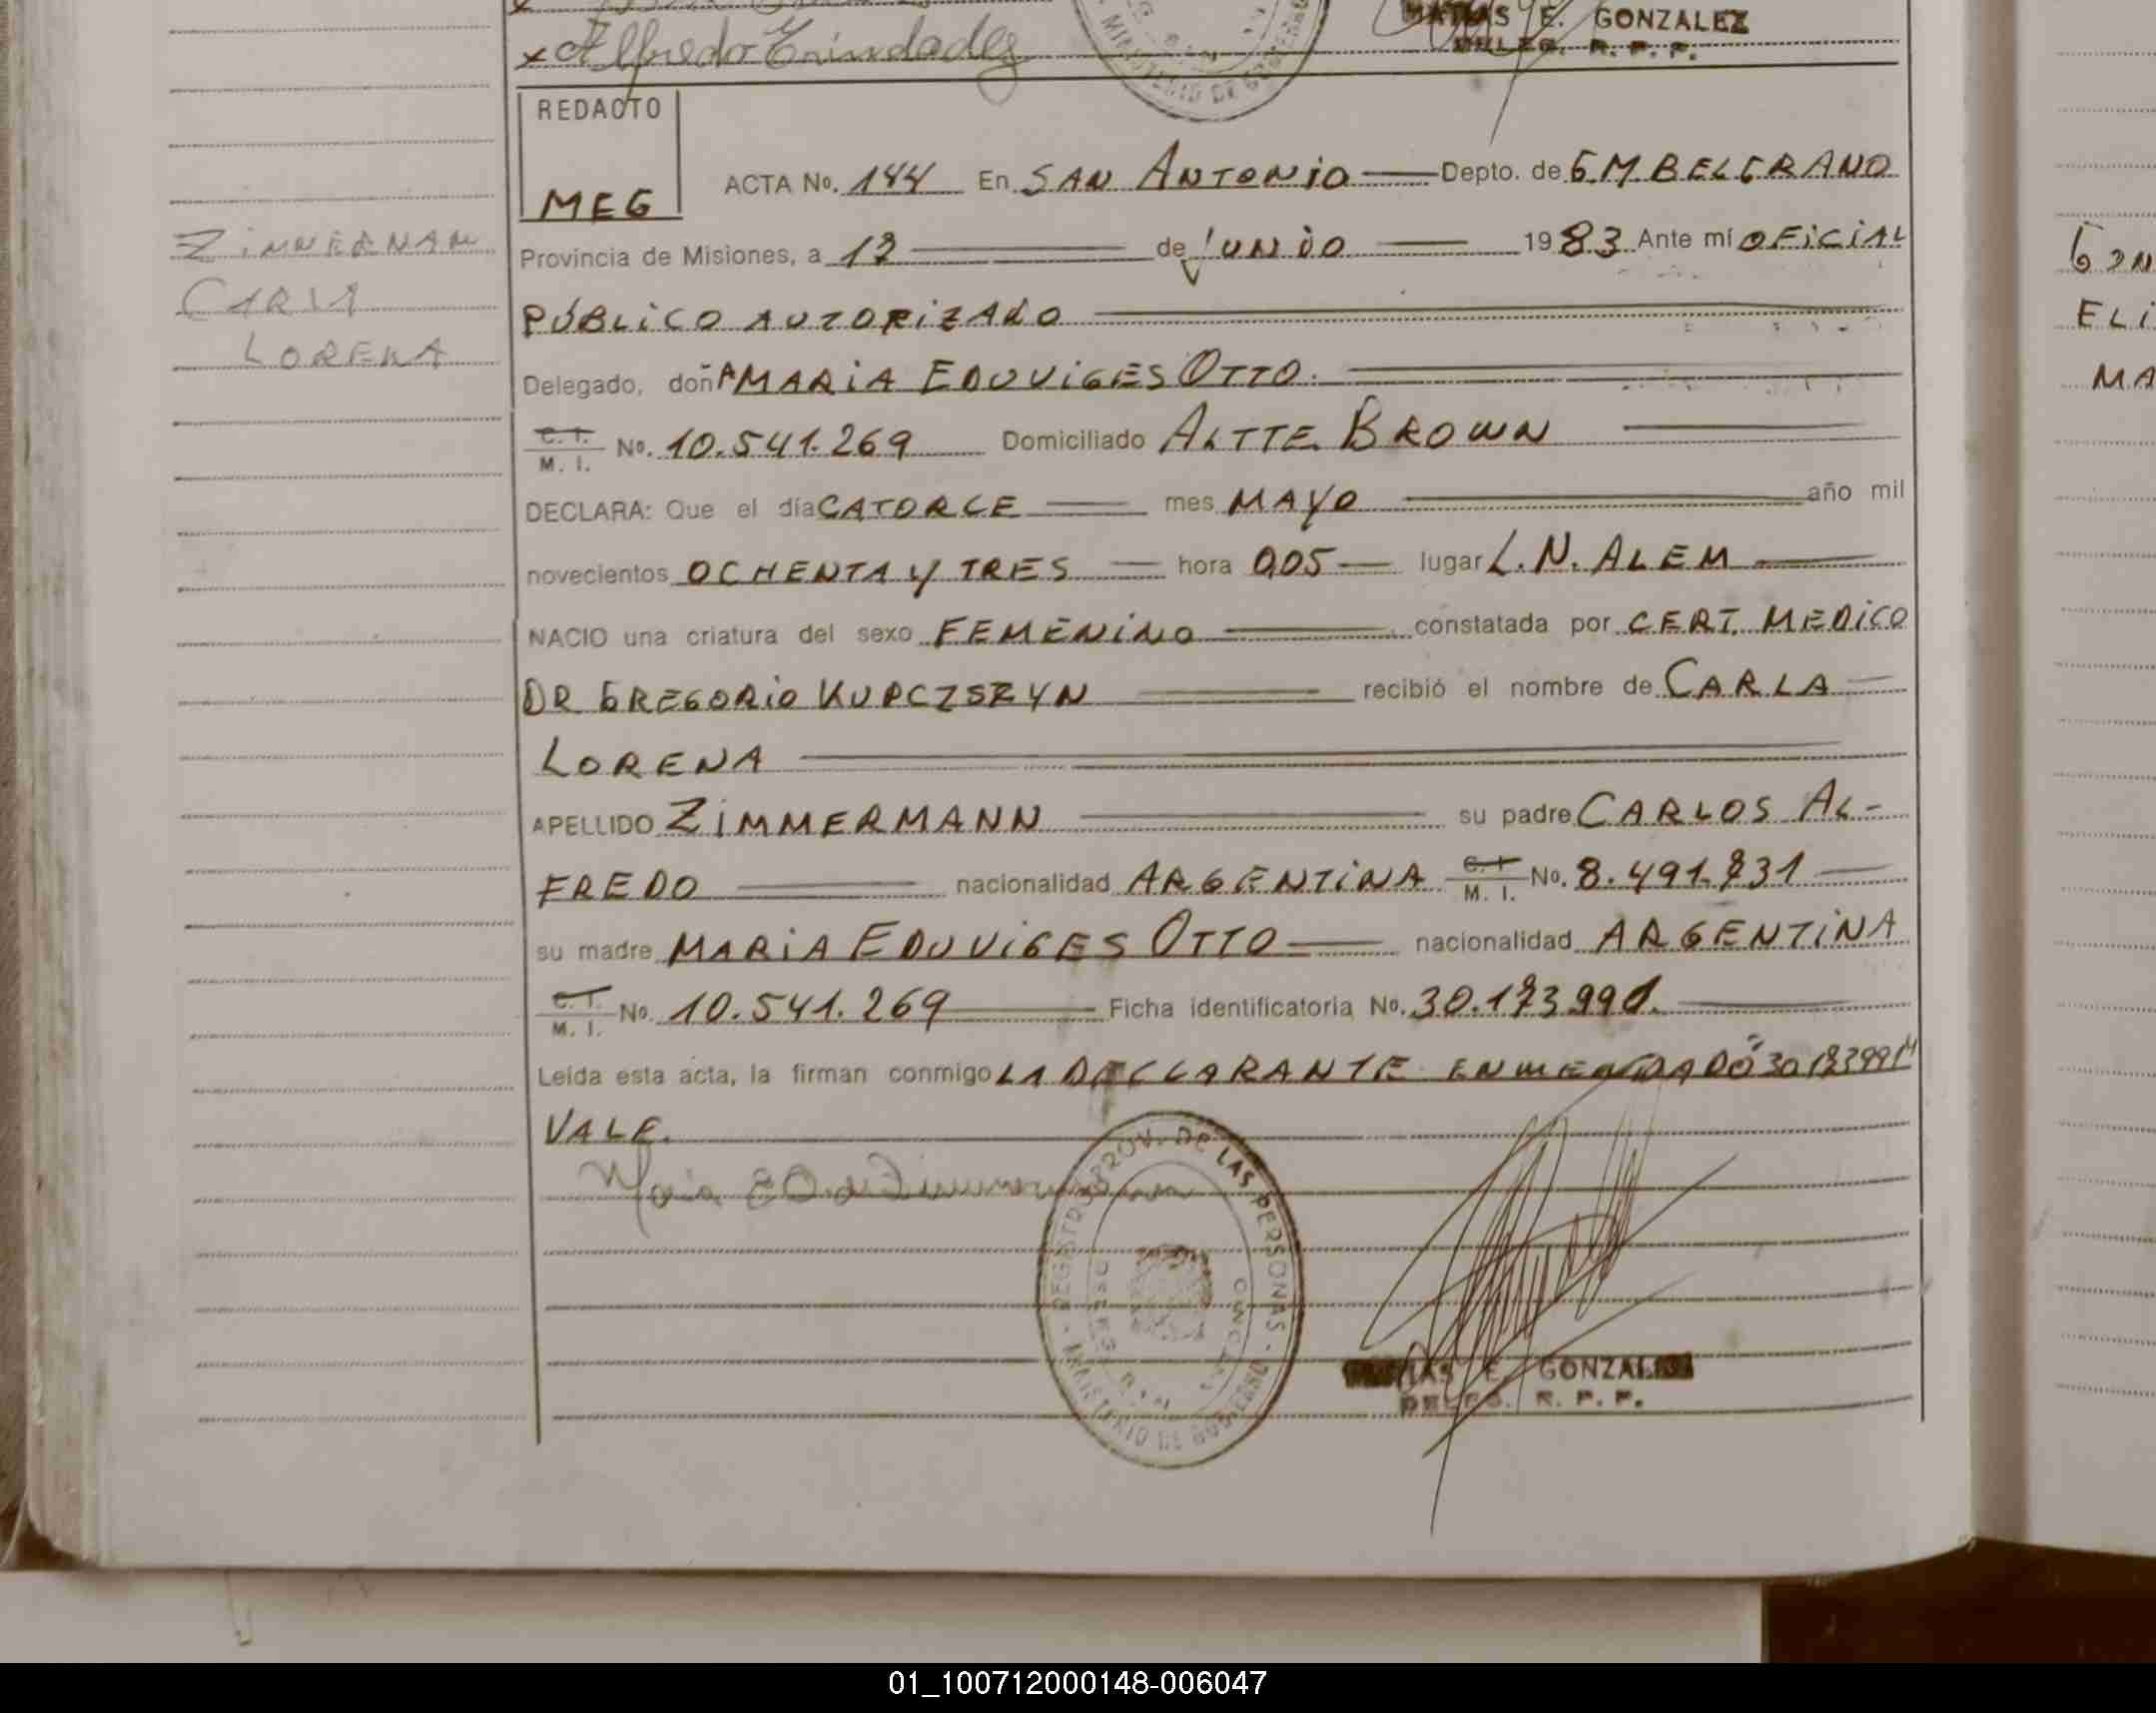 Alfredo Trindadez
MATIAS E. GONZALEZ
DELEG. R. P. P.
REDACTO
MEG
ACTA No. 144 En SAN ANTONIO Depto. de G M BELGRANO
Provincia de Misiones, a 12 de JUNIO 1983 Ante mí OFICIAL
PÚBLICO AUTORIZADO
Delegado, doñA MARIA EDUVIGES OTTO.
C. I.
M. I. No. 10.541.269 Domiciliado ALTTE BROWN
DECLARA: Que el día CATORCE mes MAYO año mil
novecientos OCHENTA y TRES hora 0,05 lugar L.N. ALEM
NACIO una criatura del sexo FEMENINO constatada por CERT. MEDICO
DR GREGORIO KUPCZSZYN recibió el nombre de CARLA
LORENA
APELLIDO ZIMMERMANN su padre CARLOS AL-
FREDO nacionalidad ARGENTINA C. I. M. I. No. 8.491.731
su madre MARIA EDUVIGES OTTO nacionalidad ARGENTINA
C. I.
M. I. No. 10.541.269 Ficha identificatoria No. 30.173991.
Leída esta acta, la firman conmigo LA DECLARANTE ENMENDADO "30 173991"
VALE.
PROV. DE LAS PERSONAS
MATIAS E. GONZALEZ
DELEG. R. P. P.
ZIMMERMANN
CARLA
LORENA
ELI
MA
01_100712000148-006047